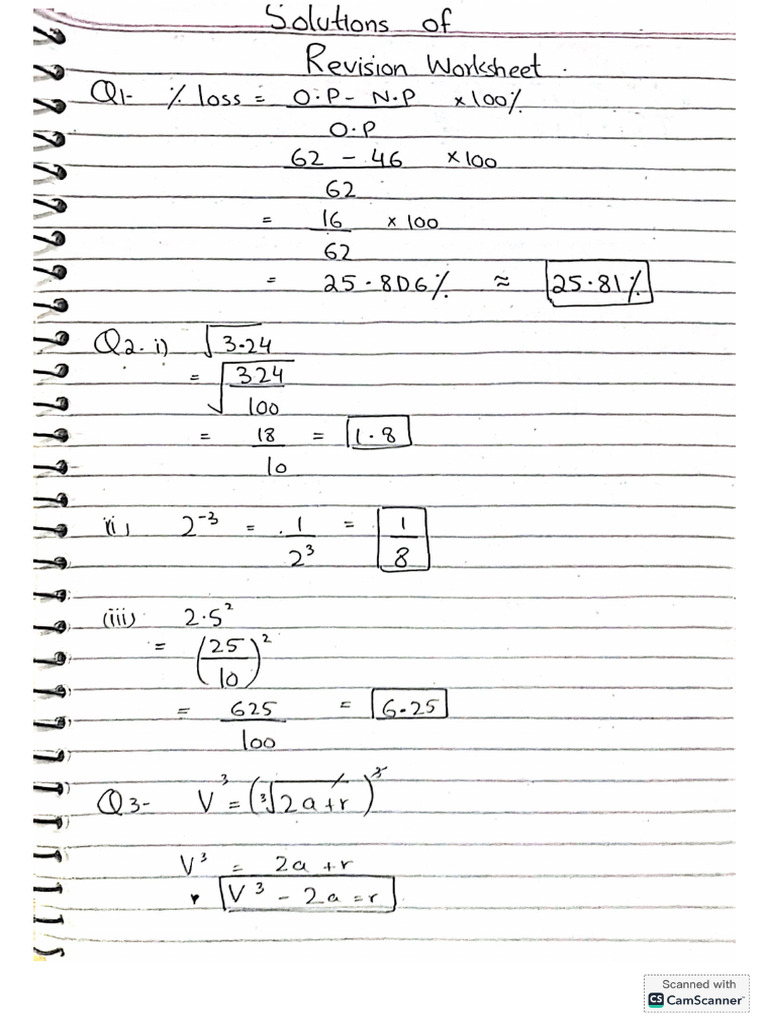 Solutions of
Revision Worksheet.
Q1- % loss = O.P - N.P × 100%
O.P
62 - 46 × 100
62
= 16 × 100
62
= 25.806% ≈ 25.81%
Q2- i) √3.24
= √324
100
= 18 = 1.8
10
ii) 2⁻³ = 1 = 1
2³ 8
(iii) 2.5²
= (25)²
10
= 625 = 6.25
100
Q3- V³ = (³√2a+r)³
V³ = 2a+r
V³ - 2a = r
Scanned with
CS CamScanner